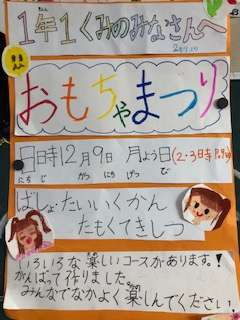 1年1くみのみなさんへ
2年1くみより
おもちゃまつり
日時12月9日 月よう日(2・3時間目)
にちじ がつ にち げつ び
ばしょ・たいいくかん
たもくてきしつ
いろいろな楽しいコースがあります。!
がんばって作りました。
みんなでなかよく楽しんでください。